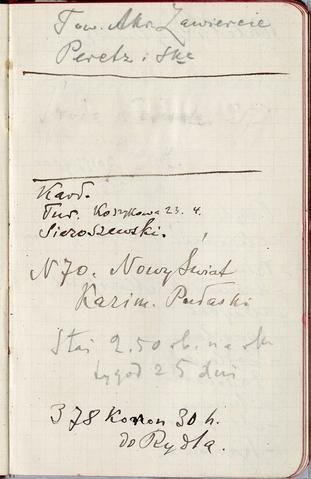 Tow. Akc. Zawiercie
Peretz i Ska
Kard.
Tur. Koszykowa 23. 4.
Sieroszewski.
N 70. Nowy Świat
Kazim. Pułaski
2.50 rb. na
tygod 25 dni
378 Koron 30 h.
do Rydla.